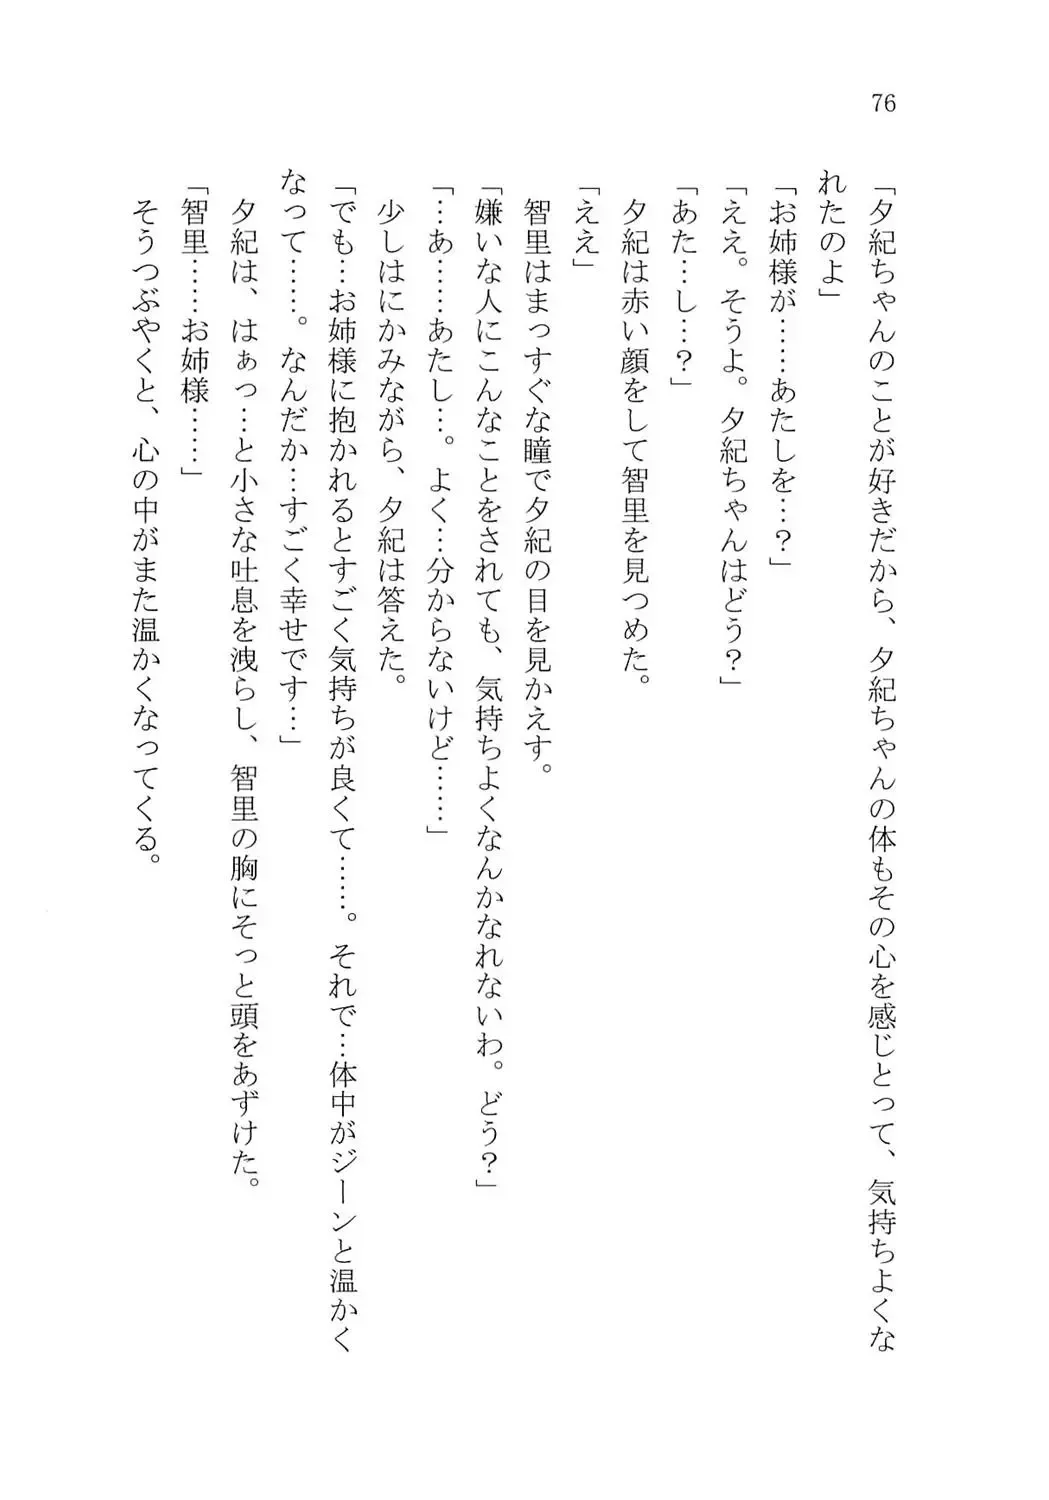 76
「夕紀ちゃんのことが好きだから、夕紀ちゃんの体もその心を感じとって、気持ちよくな
れたのよ」
「お姉様が……あたしを…？」
「ええ。そうよ。夕紀ちゃんはどう？」
「あた…し…？」
夕紀は赤い顔をして智里を見つめた。
「ええ」
智里はまっすぐな瞳で夕紀の目を見かえす。
「嫌いな人にこんなことをされても、気持ちよくなんかなれないわ。どう？」
「…あ……あたし…。よく…分からないけど……」
少しはにかみながら、夕紀は答えた。
「でも…お姉様に抱かれるとすごく気持ちが良くて……。それで…体中がジーンと温かく
なって……。なんだか…すごく幸せです…」
夕紀は、はぁっ…と小さな吐息を洩らし、智里の胸にそっと頭をあずけた。
「智里……お姉様……」
そうつぶやくと、心の中がまた温かくなってくる。